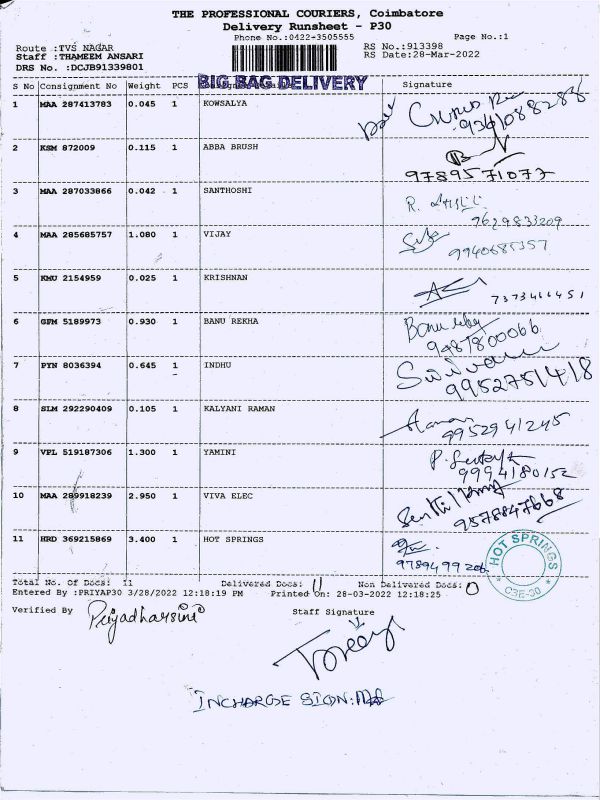 THE PROFESSIONAL COURIERS, Coimbatore
Delivery Runsheet - P30
Phone No.:0422-3505555 Page No.:1
Route :TVS NAGAR RS No.:913398
Staff :THAMEEM ANSARI RS Date:28-Mar-2022
DRS No. :DCJB91339801
BIG BAG DELIVERY
S No Consignment No Weight PCS Signature
1 MAA 287413783 0.045 1 KOWSALYA
2 KSM 872009 0.115 1 ABBA BRUSH
9789571077
3 MAA 287033866 0.042 1 SANTHOSHI
R.
9629833209
4 MAA 285685757 1.080 1 VIJAY
5 KMU 2154959 0.025 1 KRISHNAN
7373466451
6 GFM 5189973 0.930 1 BANU REKHA Banu
9487800066
7 PYN 8036394 0.645 1 INDHU
9952751418
8 SLM 292290409 0.105 1 KALYANI RAMAN
9952941245
9 VPL 519187306 1.300 1 YAMINI P.
9994180152
10 MAA 289918239 2.950 1 VIVA ELEC
9578847668
11 HRD 369215869 3.400 1 HOT SPRINGS
9789499206
HOT SPRINGS
CBE-30
Total No. Of Docs: 11 Delivered Docs: 11 Non Delivered Docs: 0
Entered By :PRIYAP30 3/28/2022 12:18:19 PM Printed On: 28-03-2022 12:18:25
Verified By Priyadharsini Staff Signature
INCHARGE SIGN: